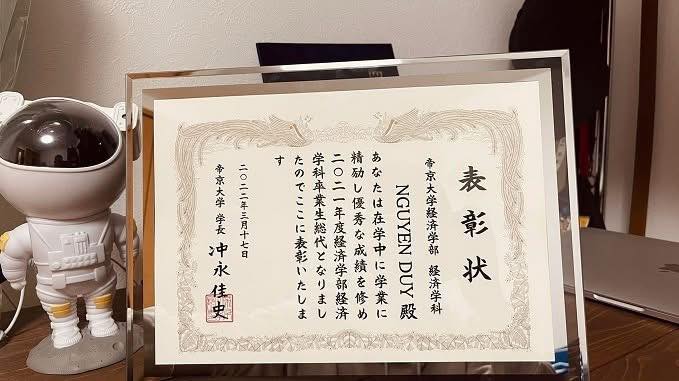 表彰状
帝京大学経済学部 経済学科
NGUYEN DUY 殿
あなたは在学中に学業に
精励し優秀な成績を修め
二〇二一年度経済学部経済
学科卒業生総代となりまし
たのでここに表彰いたしま
す
二〇二二年三月十七日
帝京大学 学長 冲永佳史